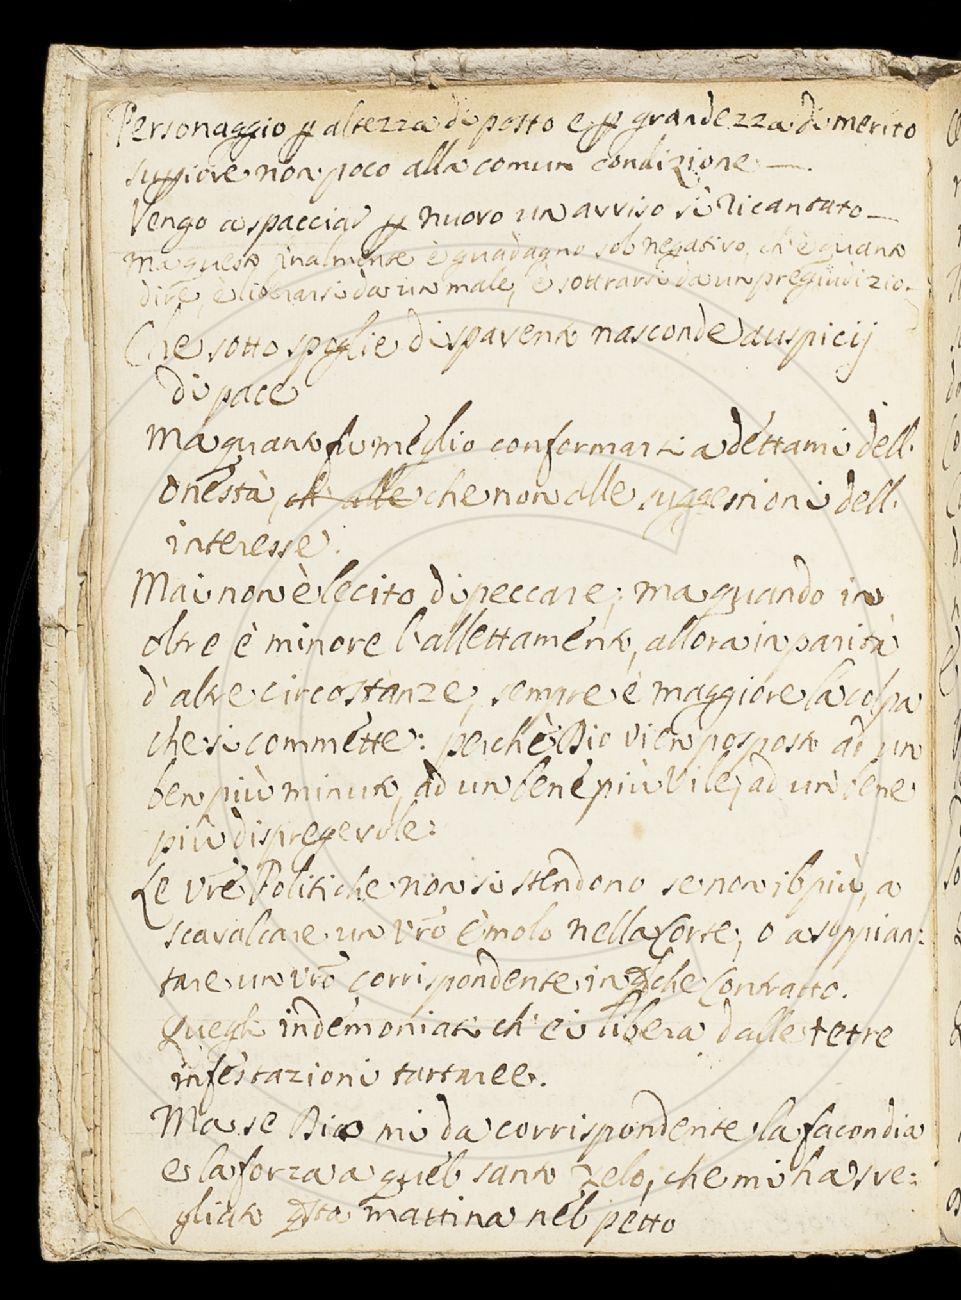 Personaggio p altezza di posto e p grandezza di merito
suppiore non poco alla comun condizione —.
Vengo a spacciar p nuovo un avviso sì ricantato —
ma questo finalmente è guadagno sol negativo, ch'è quanto
dire, è liberarsi da un male, è sottrarsi da un pregiudizio.
Che sotto spoglie di spavento nasconde auspicij
di pace
Ma quanto fu meglio conformarsi a dettami dell'
onestà, che non alle suggestioni dell'
interesse.
Mai non è lecito di peccare; ma quando in
oltre è minore l'allettamento, allora in parità
d'altre circostanze, sempre è maggiore la colpa
che si commette: perchè Dio vien posposto ad un
ben più minuto, ad un bene più vile, ad un bene
più dispregevole:
Le vr̃e Politiche non si stendono se non il più, a
scavalcare un vr̃o emolo nella Corte, o a soppian:
tare un vr̃o corrispondente in qche Contratto.
Quegli indemoniati ch'ei libera dalle tetre
infestazioni tartaree.
Ma se Dio mi da corrispondente la facondia
e la forza a quel santo zelo, che mi ha sve:
gliato qsta mattina nel petto